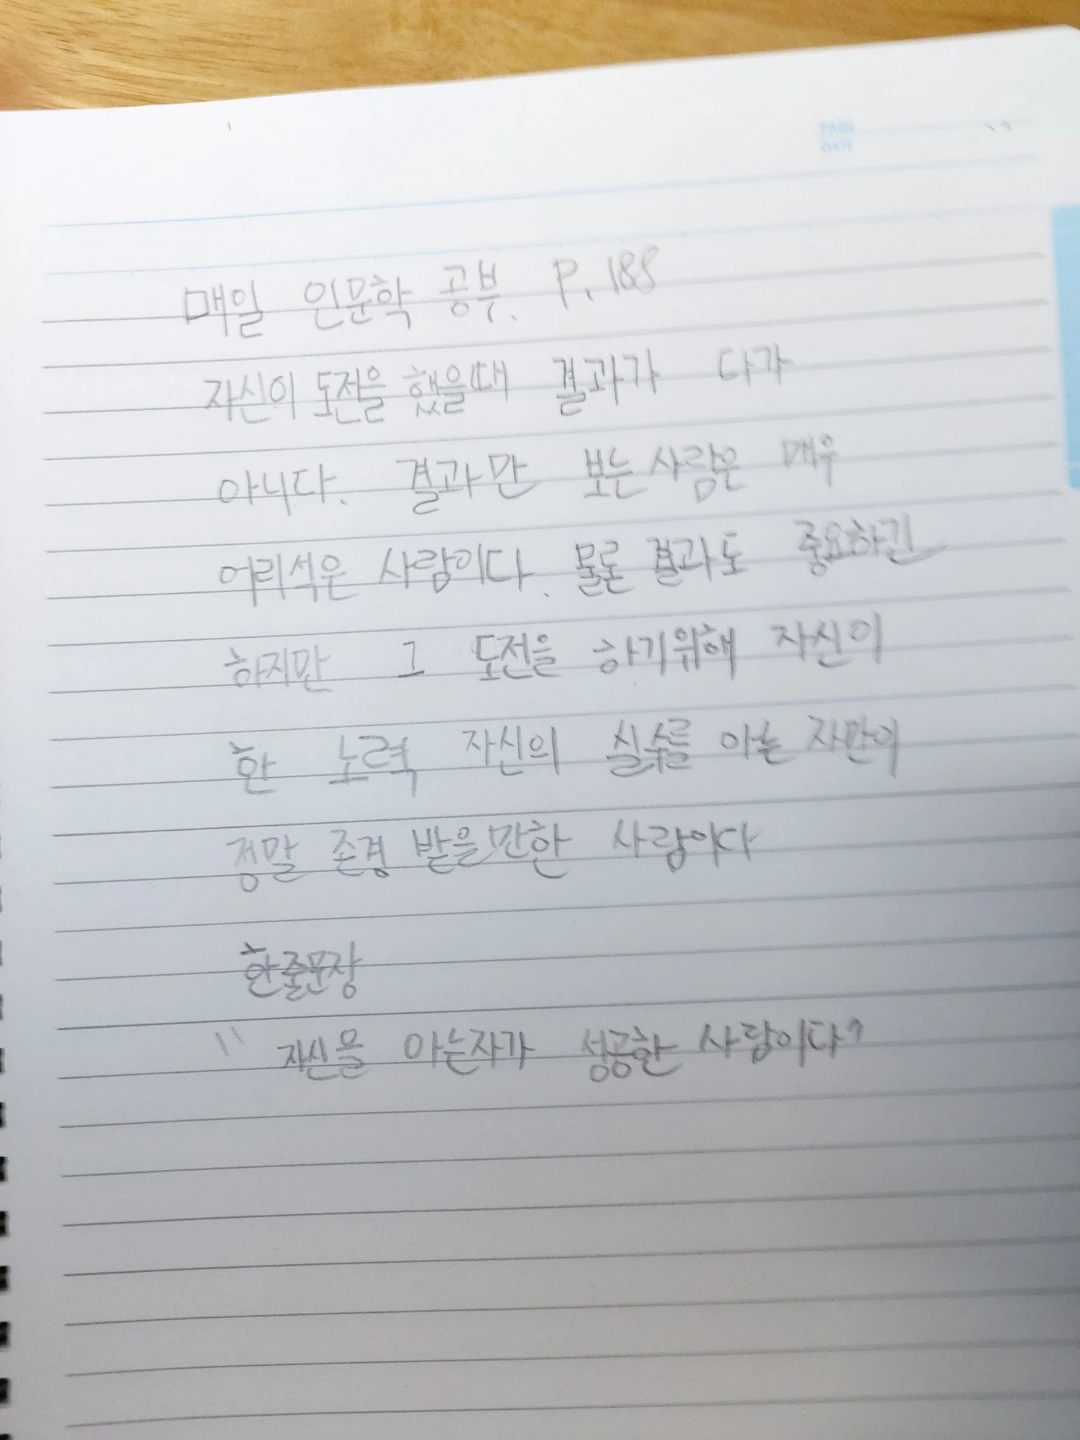 PAGE
DATE
매일 인문학 공부. P.188
자신이 도전을 했을때 결과가 다가
아니다. 결과만 보는 사람은 매우
어리석은 사람이다. 물론 결과도 중요하긴
하지만 그 도전을 하기위해 자신이
한 노력 자신의 실수를 아는 자만이
정말 존경 받을만한 사람이다
한줄문장
" 자신을 아는자가 성공한 사람이다"